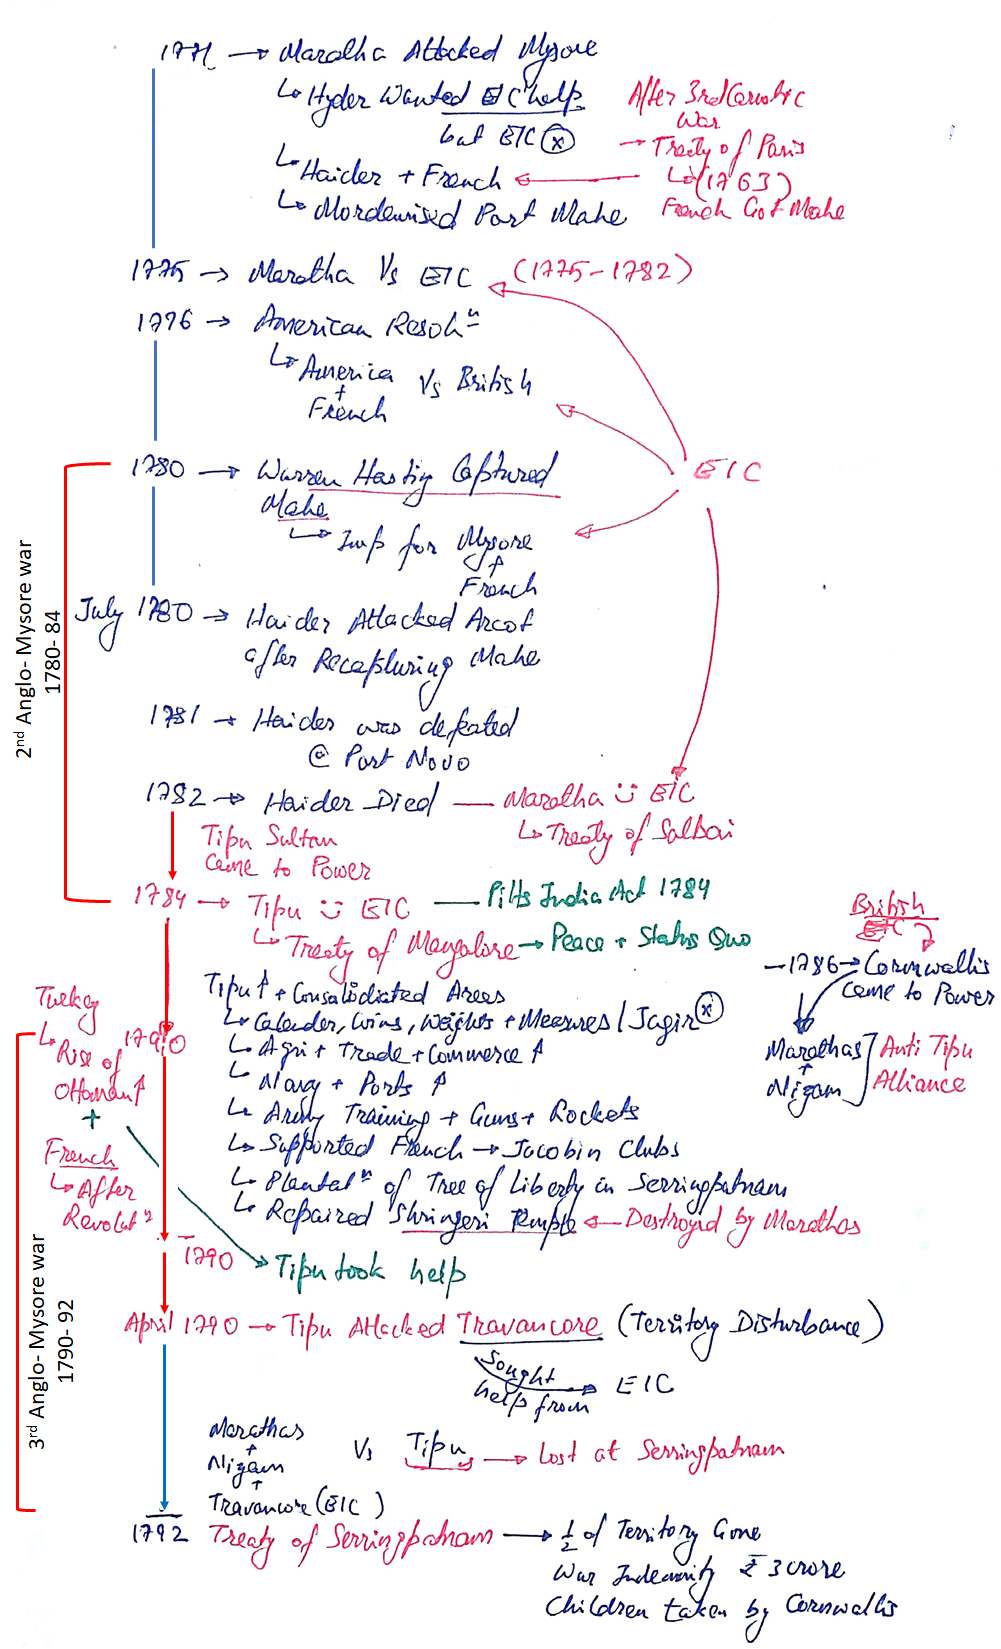 1771 → Maratha Attacked Mysore
↳ Hyder Wanted EIC help
but EIC ⓧ
After 3rd Carnatic
War
→ Treaty of Paris
↳ (1763)
French Got Mahe
↳ Haider + French
↳ Mordernised Port Mahe
1775 → Maratha Vs EIC (1775-1782)
1776 → American Resolⁿ
↳ America Vs British
+
French
EIC
1780 → Warren Hasting Captured
Mahe
↳ Imp for Mysore
↑
French
2nd Anglo- Mysore war
1780- 84
July 1780 → Haider Attacked Arcot
after Recapturing Mahe
1781 → Haider was defeated
@ Port Novo
1782 → Haider Died — Maratha ü EIC
↳ Treaty of Salbai
Tipu Sultan
Came to Power
1784 → Tipu ü EIC — Pitts India Act 1784
↳ Treaty of Mangalore → Peace + Status Quo
British
EIC
–1786→ Cornwallis
Came to Power
Marathas
+
Nizam
Anti Tipu
Alliance
Tipu ↑ + Consalidiated Areas
↳ Calender, Coins, Weights + Measures / Jagir ⓧ
↳ Agri + Trade + Commerce ↑
↳ Navy + Ports ↑
↳ Army Training + Guns + Rockets
↳ Supported French → Jacobin Clubs
↳ Plantatⁿ of Tree of Liberty in Serringpatnam
↳ Repaired Shringeri Temple ← Destroyed by Marathas
Turkey
↳ Rise of
Ottoman ↑
+
French
↳ After
Revolutⁿ
1790
1790
→ Tipu took help
3rd Anglo- Mysore war
1790- 92
April 1790 → Tipu Attacked Travancore (Territory Disturbance)
Sought
help from → EIC
Marathas
+
Nizam
+
Travancore (EIC)
Vs Tipu → Lost at Serringpatnam
1792 Treaty of Serringpatnam → ½ of Territory Gone
War Indemnity ₹ 3 crore
Children taken by Cornwallis